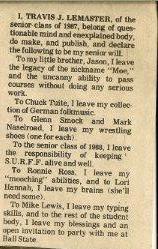 I, TRAVIS J. LEMASTER, of the
senior class of 1987, being of ques-
tionable mind and body,
do make, and publish, and declare
the following to be my senior will.
To my little brother, Jason, I leave
the legacy of the nickname "Moe,"
and the uncanny ability to pass
courses without doing any serious
work.
To Chuck Tuite, I leave my collec-
tion of German folkmusic.
To Glenn Smock and Mark
Naselroad, I leave my wrestling
shoes (one for each).
To the senior class of 1988, I leave
the responsibility of keeping
S.U.R.F.F. alive and well.
To Ronnie Ross, I leave my
"mooching" abilities, and to Lori
Hannah, I leave my brains (she'll
need some).
To Mike Lewis, I leave my typing
skills, and to the rest of the student
body, I leave my blessings and an
open invitation to party with me at
Ball State.